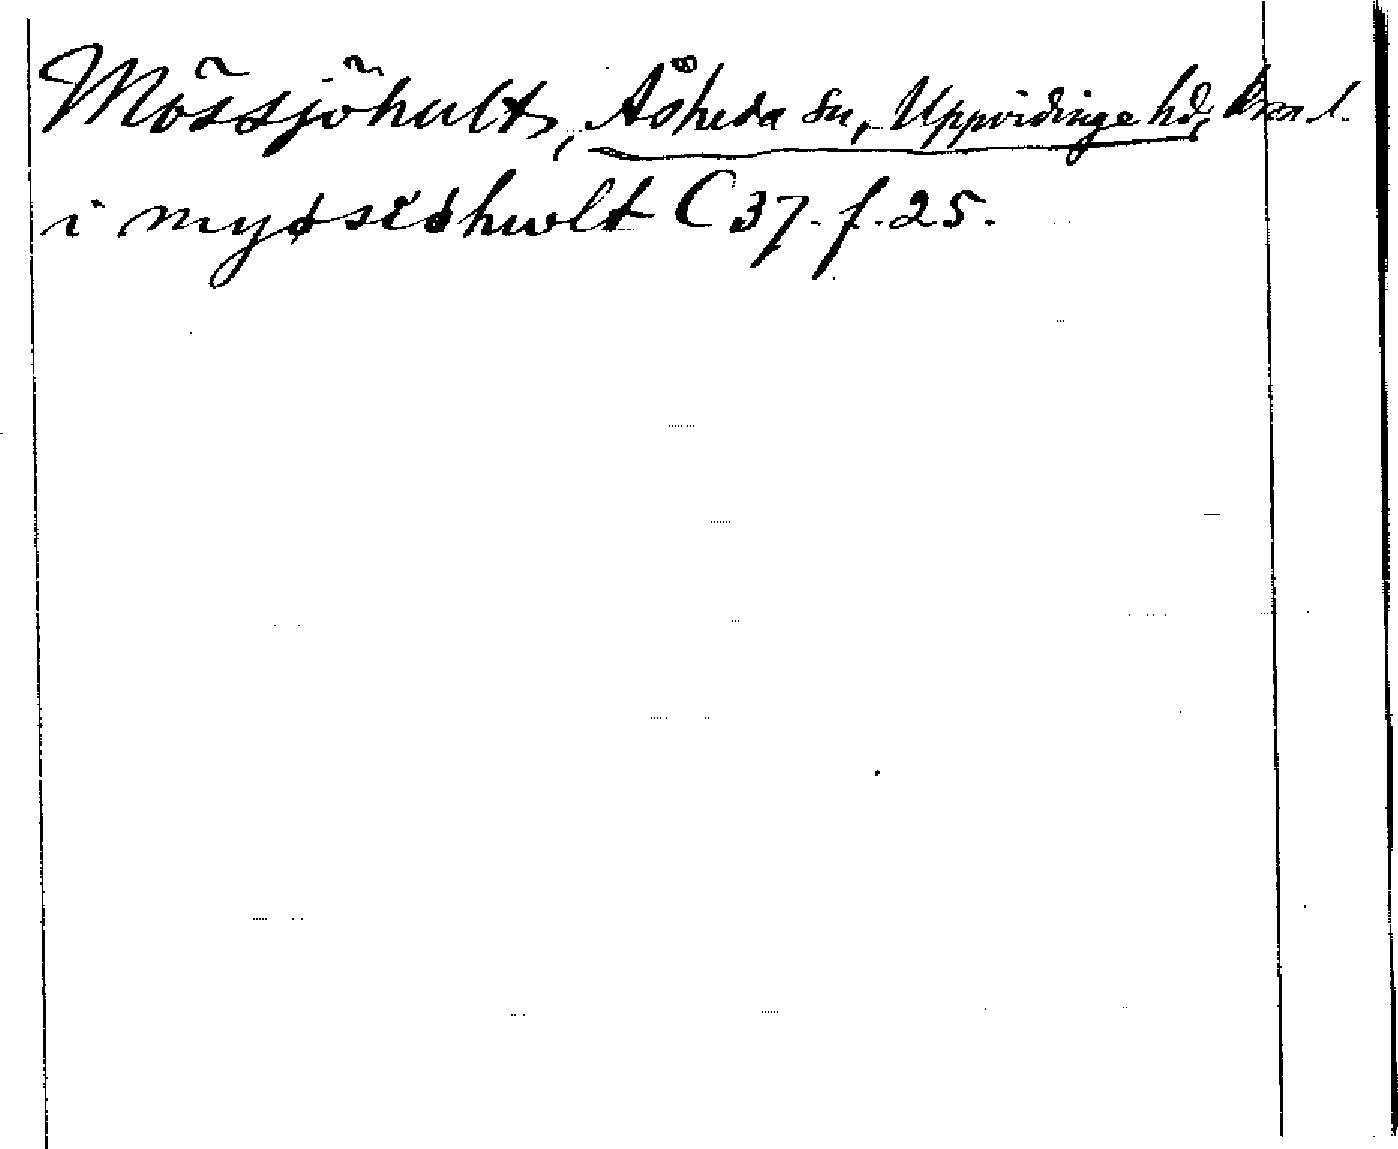 Mössjöhult, Åsheda sn, Uppvidinge hd, Kron. l.
i myøsiøhwlt C 37. f. 25.